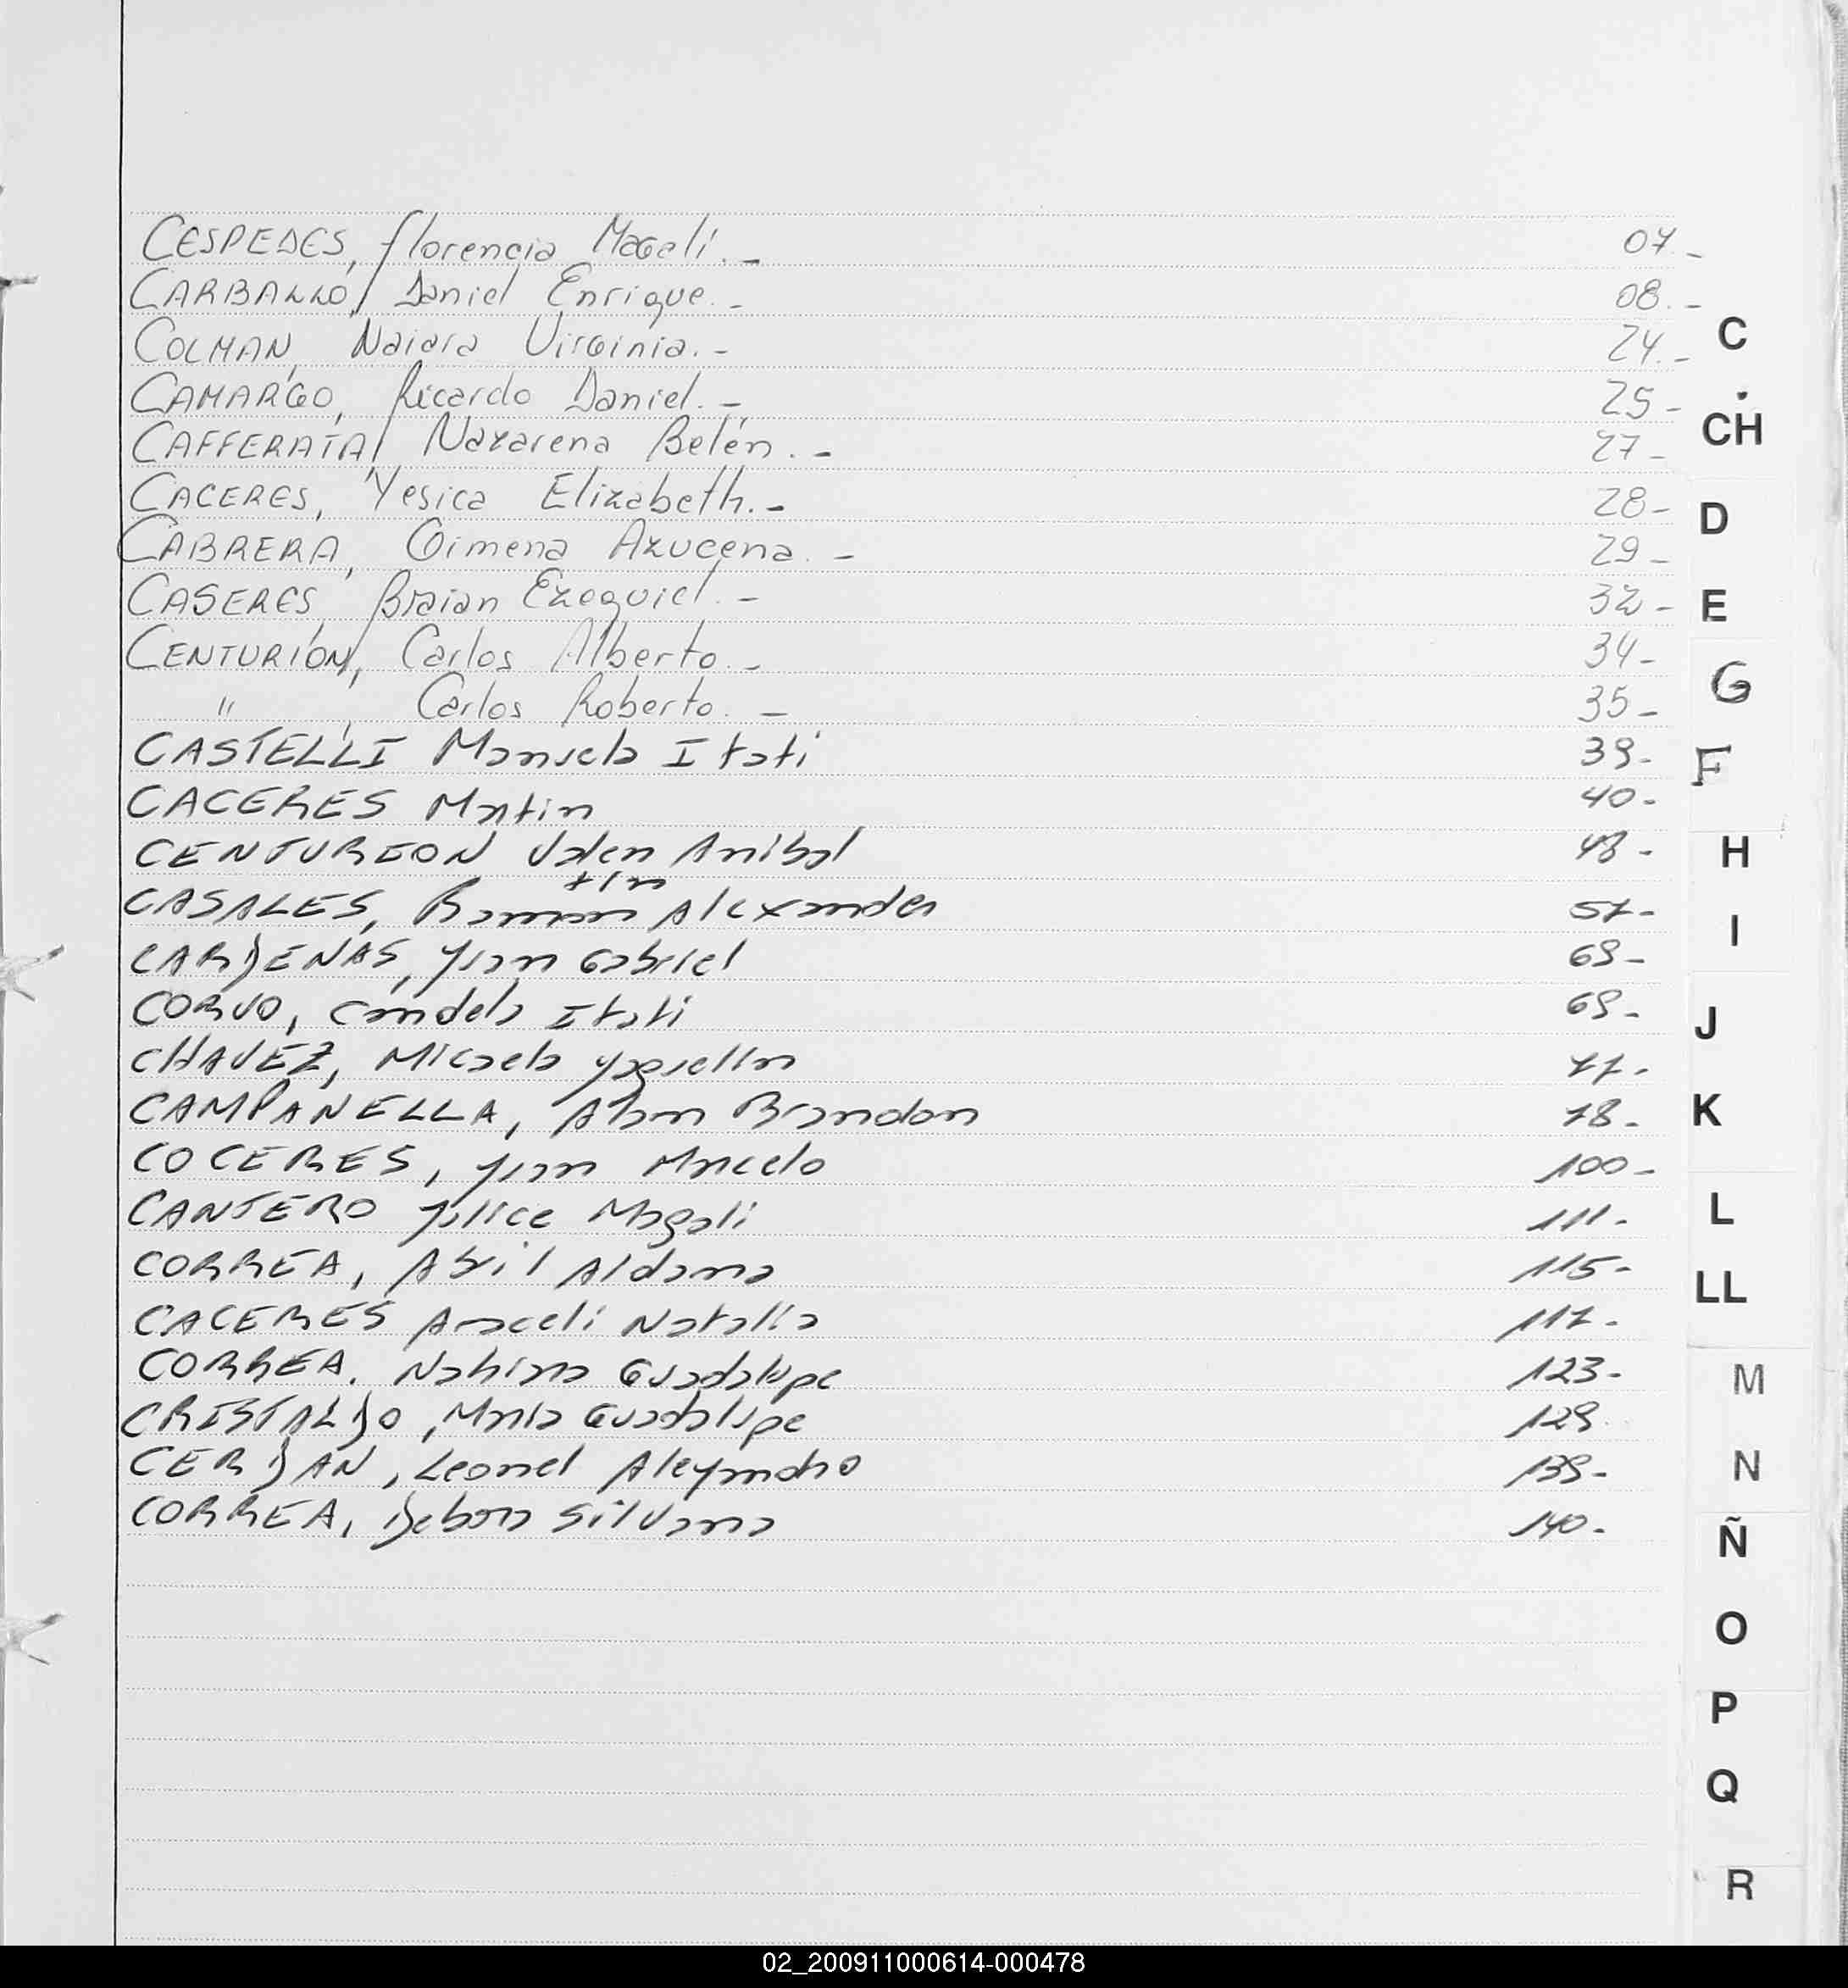 CESPEDES, Florencia Magalí.- 07.-
CARBALLO, Daniel Enrique.- 08.-
COLMAN, Naiara Virginia.- 24.-
CAMARGO, Ricardo Daniel.- 25-
CAFFERATA, Nazarena Belén.- 27-
CACERES, Yesica Elizabeth.- 28-
CABRERA, Gimena Azucena.- 29-
CASERES, Braian Ezequiel.- 32-
CENTURIÓN, Carlos Alberto.- 34-
" , Carlos Roberto.- 35-
CASTELLI Manuela Itati 39-
CACERES Martin 40-
CENTURION Valen Anibal 48-
tin
CASALES, Ramon Alexander 57-
CARDENAS, Juan Gabriel 69-
CORVO, Candela Itati 69-
CHAVEZ, Micaela 77-
CAMPANELLA, Alan Brandon 78-
COCERES, Juan Marcelo 100-
CANTERO Julice Magali 111-
CORREA, Abril Aldana 115-
CACERES Araceli Natalia 117-
CORREA. Nahiara Guadalupe 123-
CRISTALDO, Maria Guadalupe 129.
CERDAN, Leonel Alejandro 139-
CORREA, Debora Silvana 140-
C
CH
D
E
G
F
H
I
J
K
L
LL
M
N
Ñ
O
P
Q
R
02_200911000614-000478